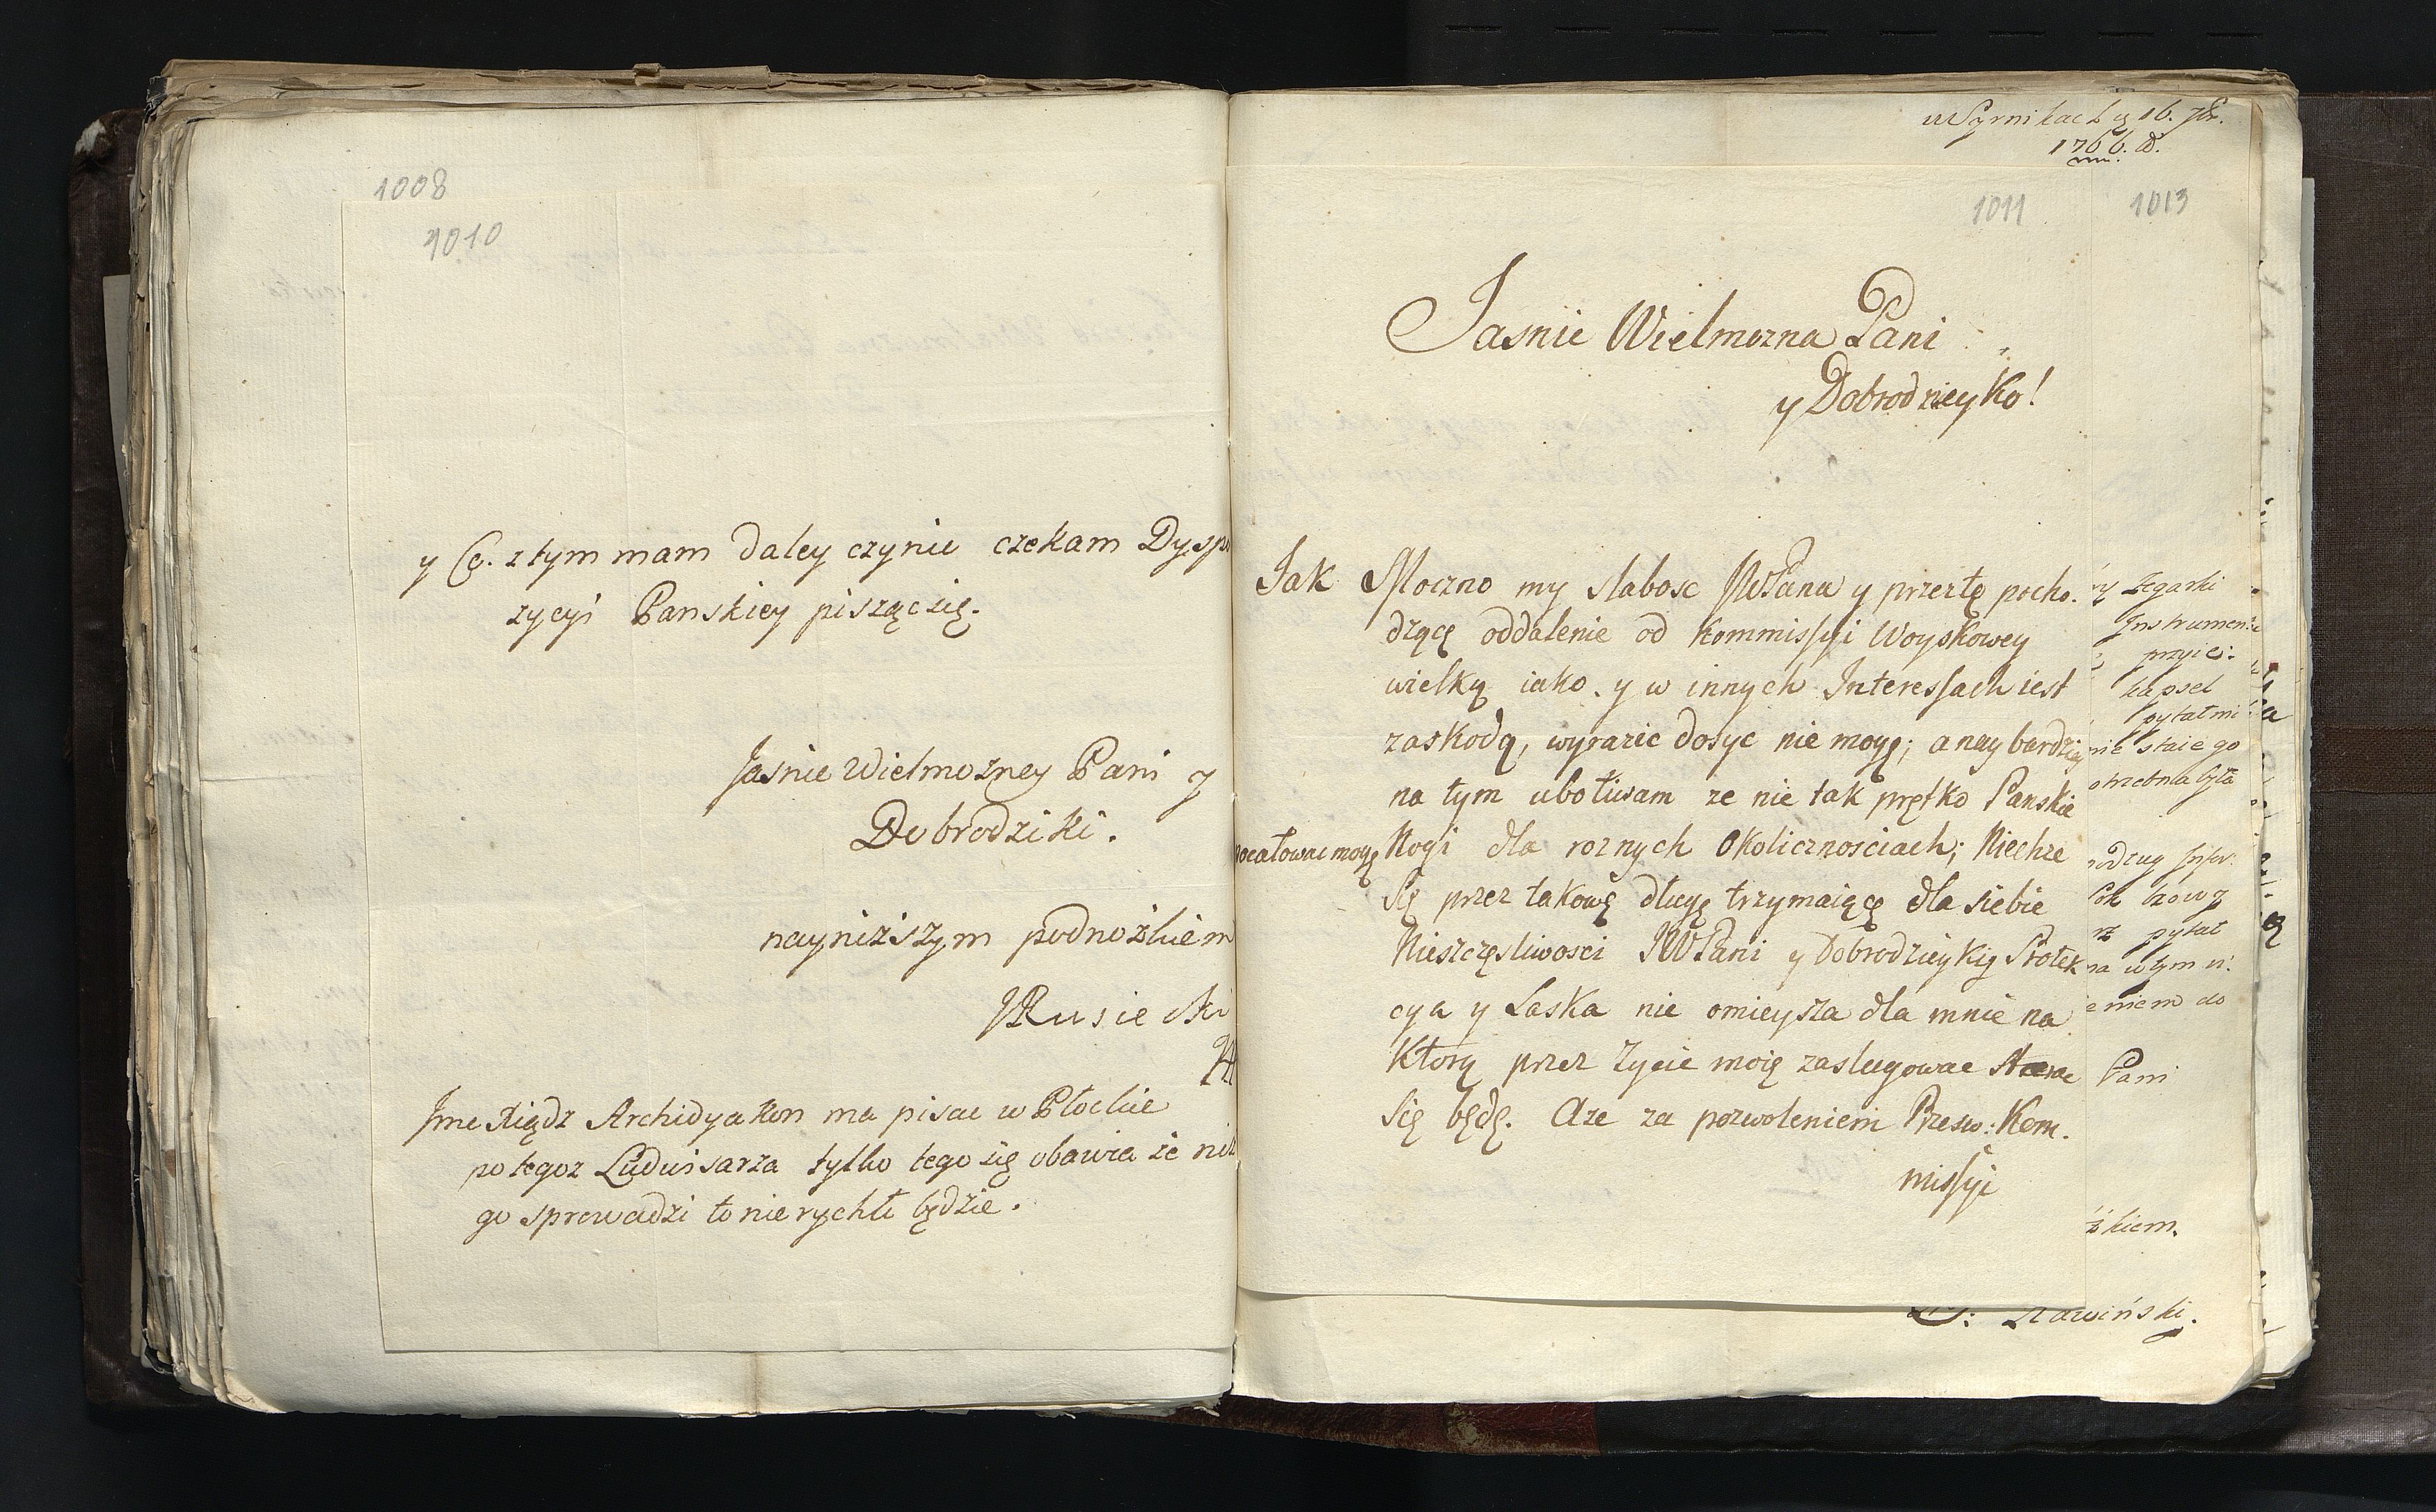 1008
1010
y Cg. z tym mam daley czynic czekam Dyspo
zycyi Panskiey piszącsię.
Jasnie Wielmozney Pani y
Dobrodziki.
nayniższym podnożkiem
JRusiecki
Jme Xiądz Archidyakon ma pisac w Płockie
po tegoz Ludwisarza tylko tego się obawia że nim
go sprowadzi to nie rychłi będzie.
16. 7br.
1766. d.
1011
1013
Jasnie Wielmozna Pani
y Dobrodzieyko!
Jak Moczno my slabosc JWPana y przeztę pocho.
dzącę oddalenie od Kommissyi Woyskowey
wielką iako. y w innych Interessach iest
zaskodą, wyrazic dosyc nie mogę; a naybardziey
na tym uboliwam ze nie tak prętko Panskie
pocałowac mogę Nogi dla roznych Okolicznosciach; Niechze
Się przez takowę długę trzymaiącę dla siebie
Nieszczęsliwosci JWPani y Dobrodzieykię Protek
cya y Laska nie omieysza dla mnie na
Ktorą przez Zycie moię zaslugowac starac
Się będę. Aze za pozwoleniem Przesw: Kom.
missyi
Zegarki
Instrument
przyie:
kapsel
pytał mi
nie staie go
otrzebna była
pytał
na wtym
eniem do
Pani
żkiem.
Zławiński.